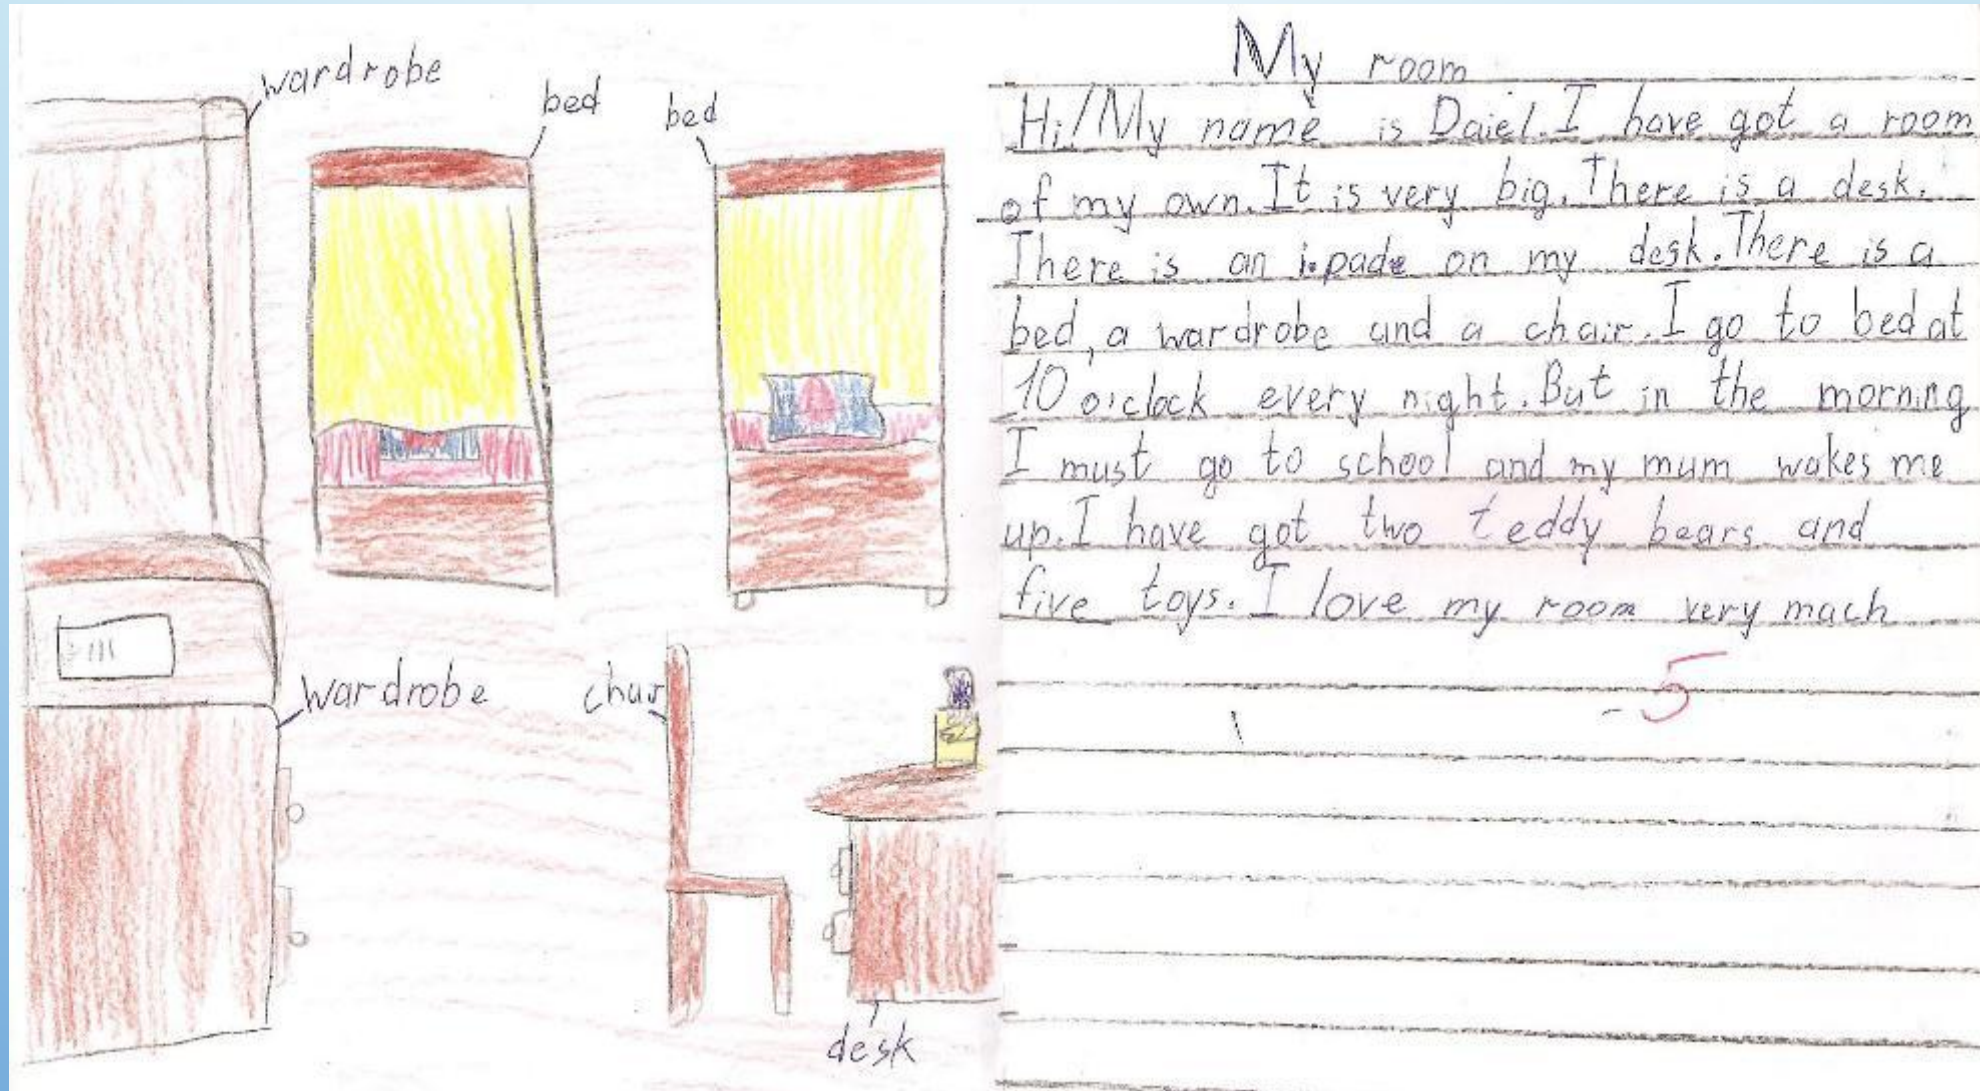 wardrobe
bed
bed
wardrobe
chair
desk
My room
Hi! My name is Daiel. I have got a room
of my own. It is very big. There is a desk.
There is an i.pade on my desk. There is a
bed, a wardrobe and a chair. I go to bed at
10 o'clock every night. But in the morning
I must go to school and my mum wakes me
up. I have got two teddy bears and
five toys. I love my room very mach
-5